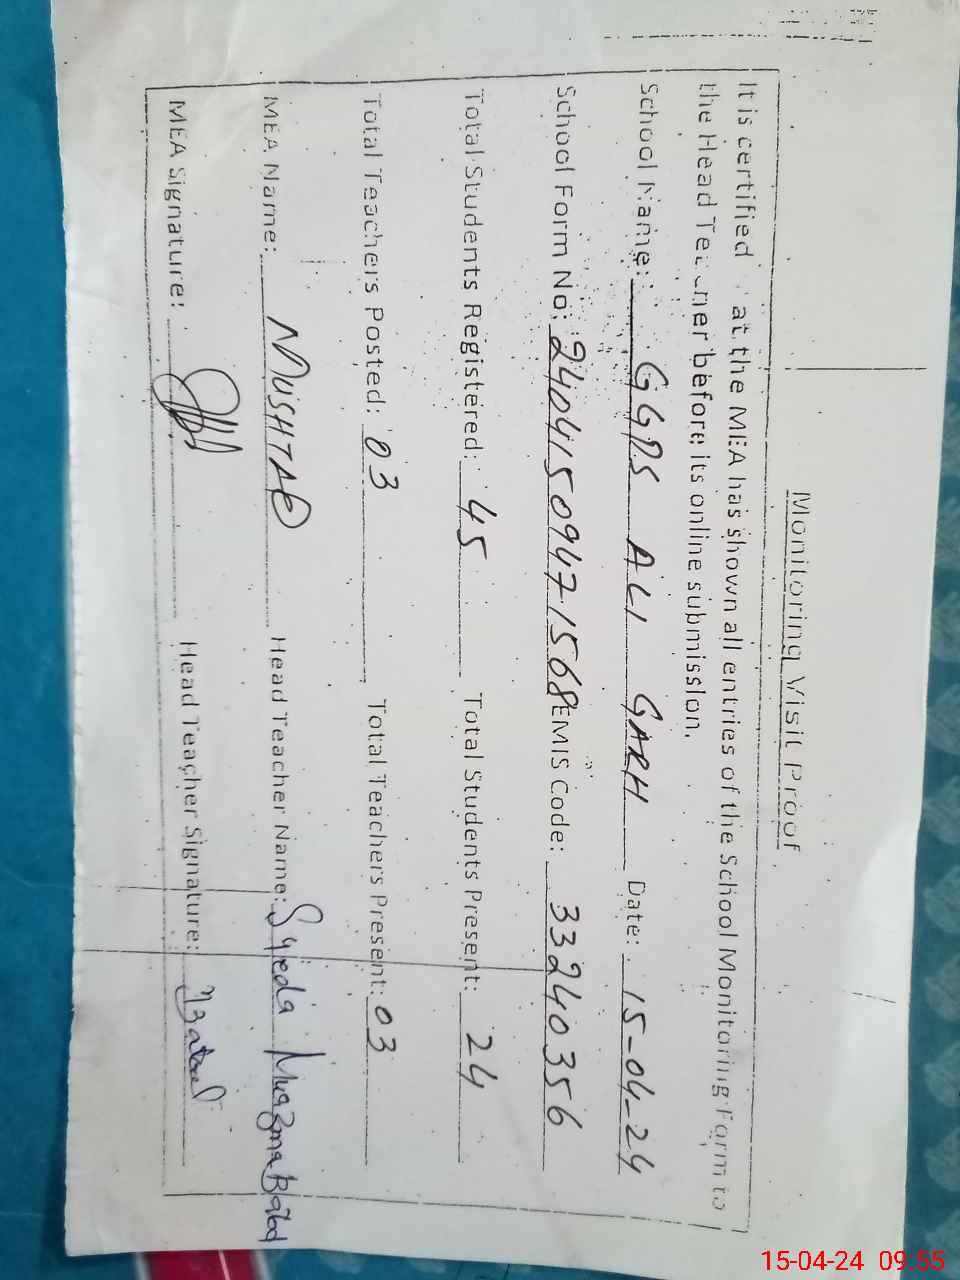 Monitoring Visit Proof
It is certified at the MEA has shown all entries of the School Monitoring Form to
the Head Teacher before its online submission.
School Name: GGPS ALI GARH Date: 15-04-24
School Form No: 2404150947 1568 EMIS Code: 33240356
Total Students Registered: 45 Total Students Present: 24
Total Teachers Posted: 03 Total Teachers Present: 03
MEA Name: MUSHTAQ Head Teacher Name: Syeda Muazma Batool
MEA Signature: Head Teacher Signature:
15-04-24 09:55